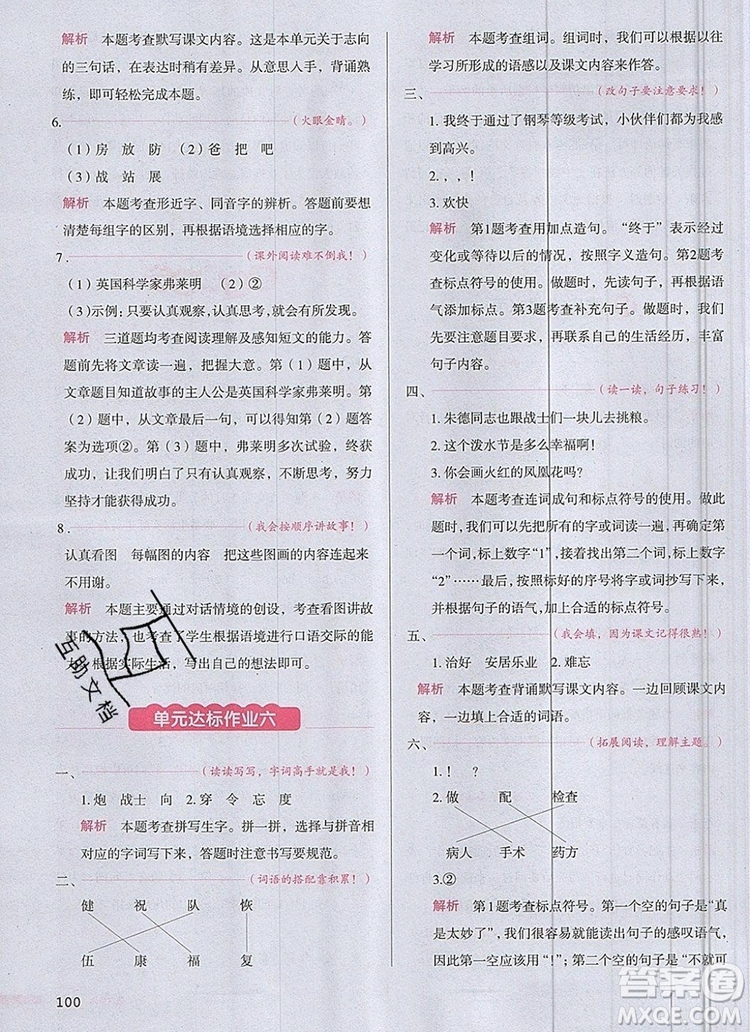 解析 本题考查默写课文内容。这是本单元关于志向
的三句话，在表达时稍有差异。从意思人手，背诵熟
练，即可轻松完成本题。
6.（火眼金睛。）
（1）房 放 防 （2）爸 把 吧
（3）战 站 展
解析 本题考查形近字、同音字的辨析。答题前要想
清楚每组字的区别，再根据语境选择相应的字。
7.（课外阅读难不倒我！）
（1）英国科学家弗莱明 （2）②
（3）示例：只要认真观察，认真思考，就会有所发现。
解析 三道题均考查阅读理解及感知短文的能力。答
题前先将文章读一遍，把握大意。第（1）题中，从
文章题目知道故事的主人公是英国科学家弗莱明。第
（2）题中，从文章最后一句，可以知道第（2）题答
案为选项②。第（3）题中，弗莱明多次试验，终获
成功，让我们明白了只有认真观察，开动脑筋，努力
坚持才能获得成功。
8.（我会按顺序讲故事！）
认真看图 每幅图的内容 把这些图画的内容连起来
不用谢。
解析 本题主要通过对话情境的创设，考查看图讲故
事的方法，也考查了学生根据语境进行口语交际的能
力。根据实际生活，写出自己的想法即可。
单元达标作业六
一、（读读写写，字词高手就是我！）
1.炮 战士 向 2.穿 令 忘 度
解析 本题考查拼写生字。拼一拼，选择与拼音相
对应的字词写下来，答题时注意书写要规范。
二、（词语的搭配靠积累！）
健 祝 队 恢
伍 康 福 复
100
解析 本题考查组词。组词时，我们可以根据以前
学习所形成的语感以及课文内容来作答。
三、（改句子要注意要求！）
1.我终于通过了钢琴等级考试，小伙伴们都为我感到
高兴。
2.，，！
3.欢快
解析 第1题考查用加点造句。“终于”表示经过
变化或等待以后的情况，按照字义造句。第2题考
查标点符号的使用。答题时，先读句子，再根据语
气添加标点。第3题考查补充句子。答题时，我们
要先观察，再联系自己的生活经历，丰富
句子内容。
四、（读一读，句子练习！）
1.朱德同志也跟战士们一块儿去挑粮。
2.这个泼水节是多么幸福啊！
3.你会画火红的凤凰花吗？
解析 本题考查连词成句和标点符号的使用。做此
题时，我们可以先把所有的字或词读一遍，确定
第一个词，标上数字“1”，接着找出第二个词，标上数字
“2”……最后，按照标好的序号将字或词抄写下来，
并根据句子的语气，加上合适的标点符号。
五、（我会填，因为课文记得很熟！）
1.治好 安居乐业 2.难忘
解析 本题考查背诵默写课文内容。一边回顾课文内
容，一边填上合适的词语。
六、（拓展阅读，理解主题。）
1.！ ？
2.做 配 检查
病人 手术 药方
3.②
解析 第1题考查标点符号。第一个空的句子是“真
是太妙了”，我们很容易就能读出句子的感叹语气，
所以应该用“！”；第二个空的句子是“不就可
互助文档
答案圈
MXQE.COM